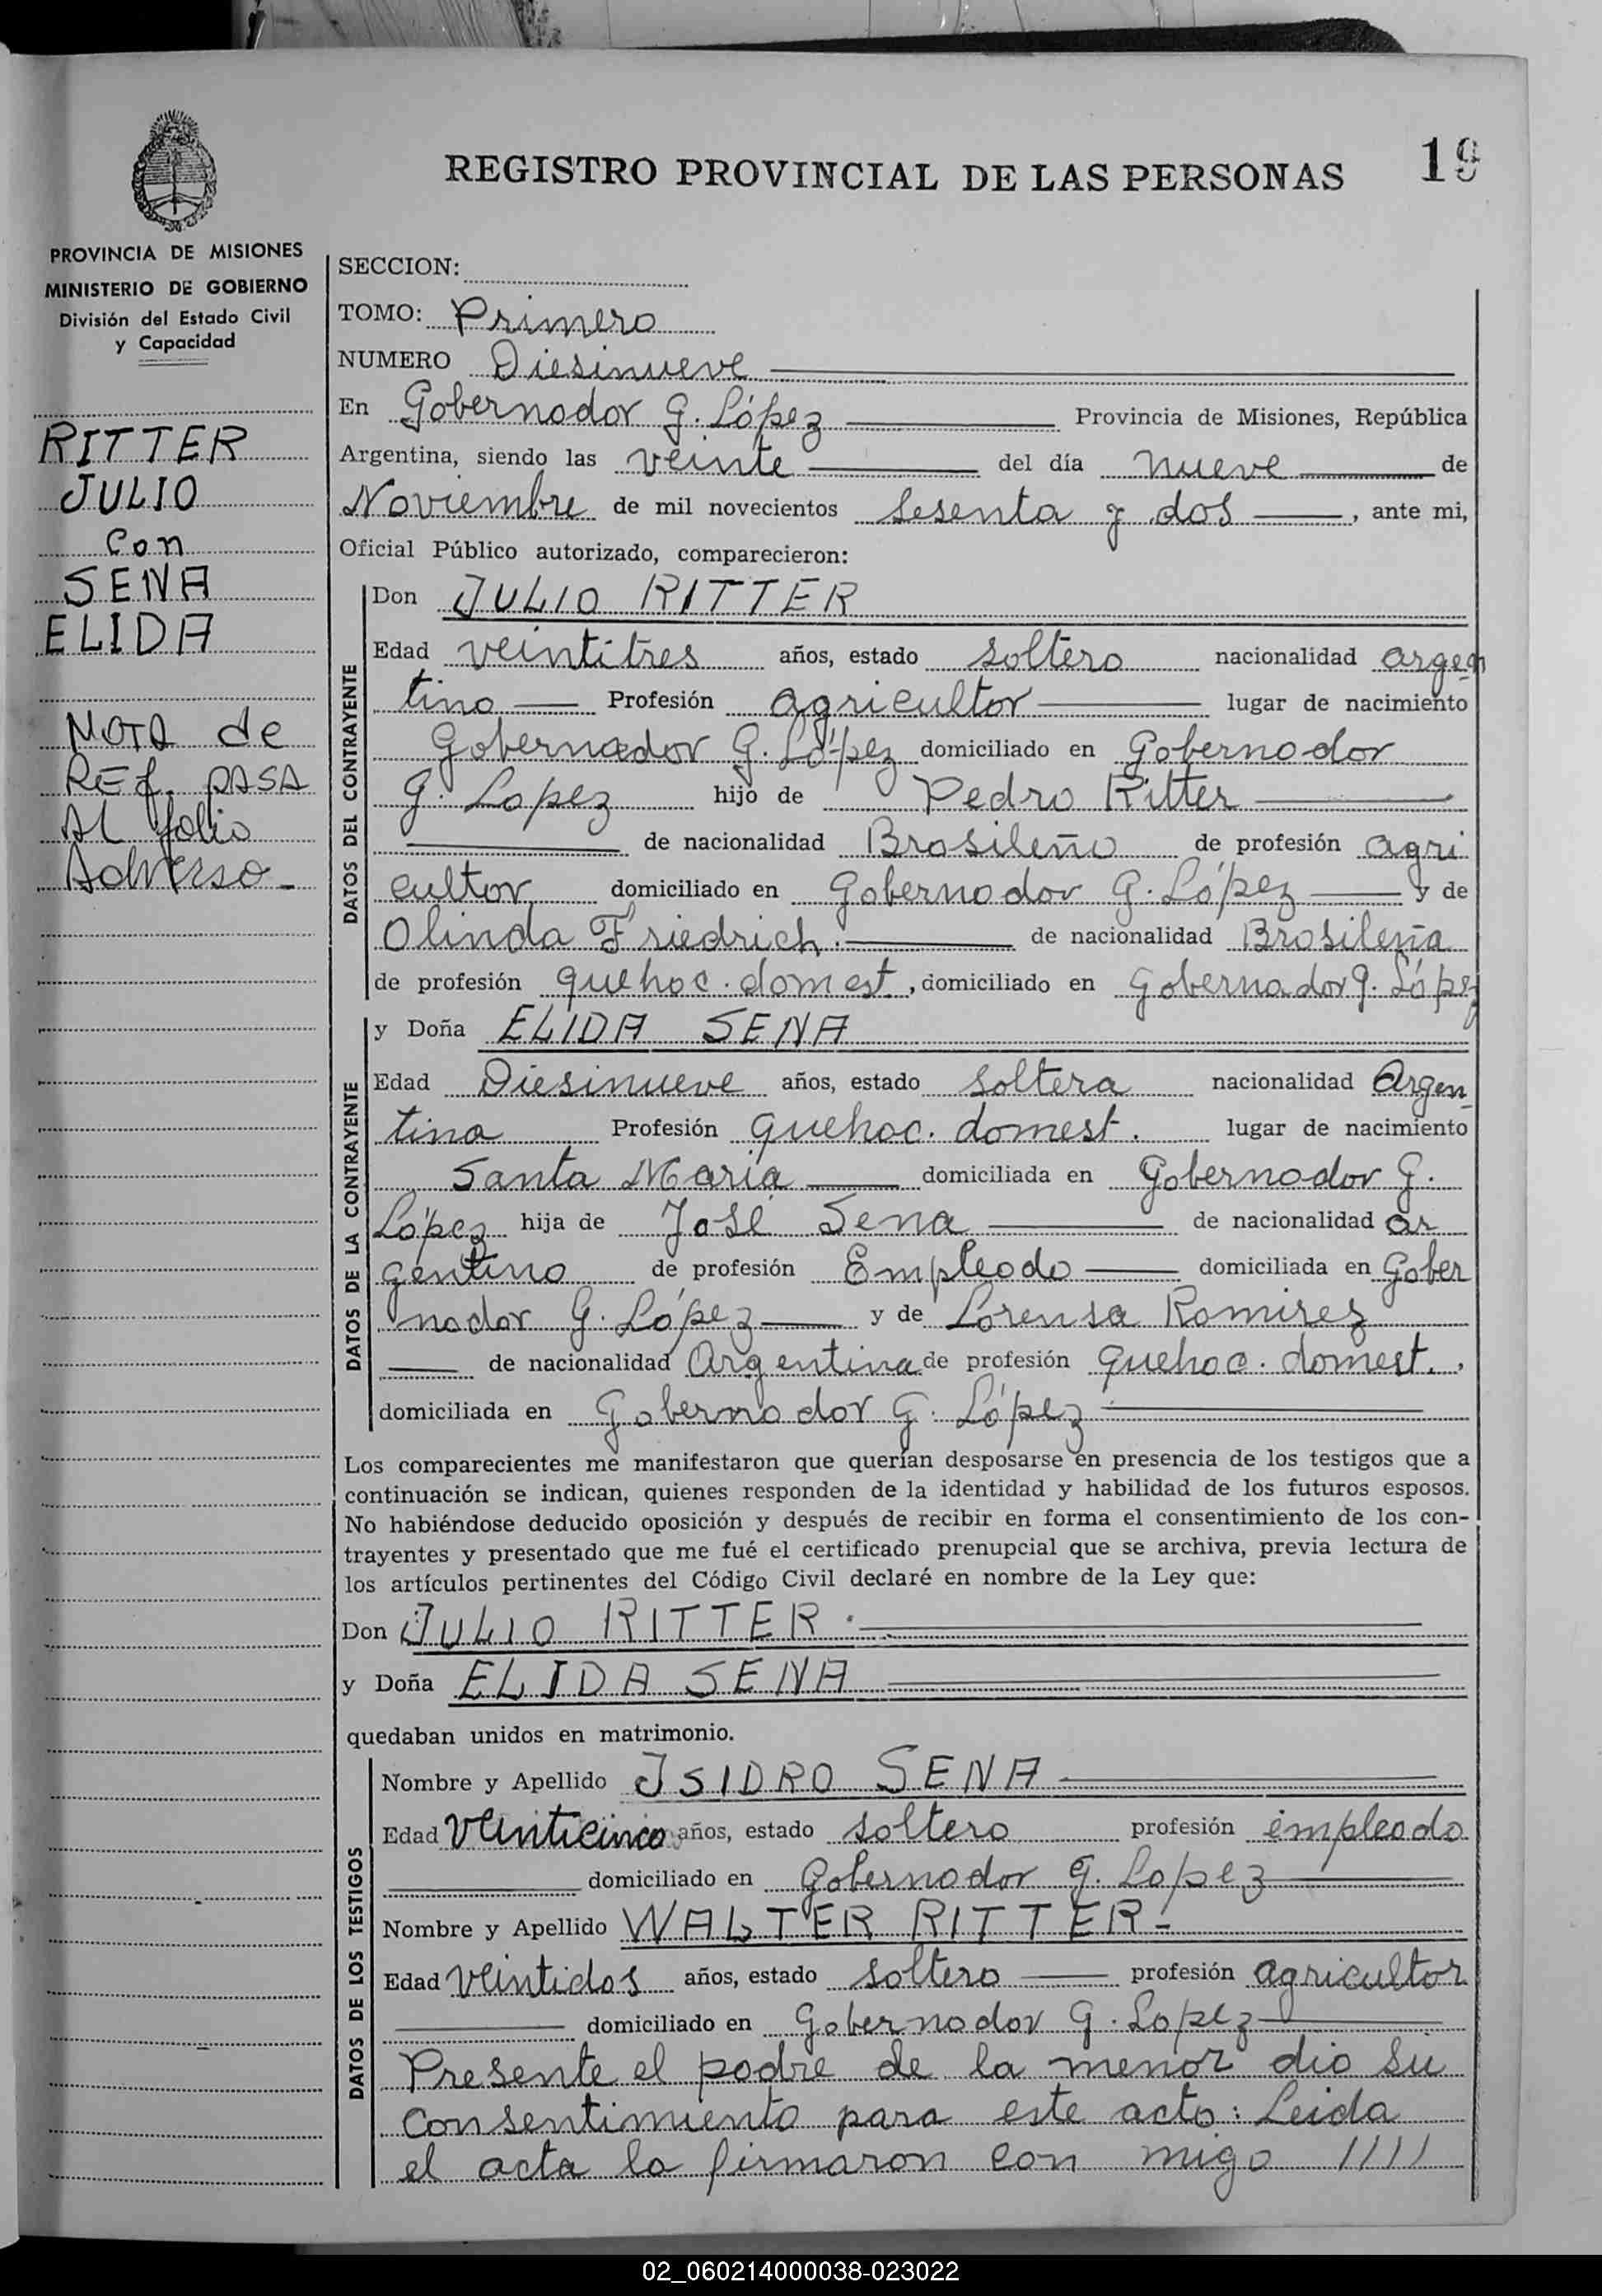 REGISTRO PROVINCIAL DE LAS PERSONAS
19
PROVINCIA DE MISIONES
MINISTERIO DE GOBIERNO
División del Estado Civil
y Capacidad
RITTER
JULIO
Con
SENA
ELIDA
NOTA de
REf. PASA
Al folio
Adverso-
SECCION:
TOMO: Primero
NUMERO Diesinueve
En Gobernador G. López Provincia de Misiones, República
Argentina, siendo las veinte del día nueve de
Noviembre de mil novecientos Sesenta y dos, ante mi,
Oficial Público autorizado, comparecieron:
DATOS DEL CONTRAYENTE
Don JULIO RITTER
Edad veintitres años, estado soltero nacionalidad argen
tino Profesión agricultor lugar de nacimiento
Gobernador G. López domiciliado en Gobernador
G. Lopez hijo de Pedro Ritter
de nacionalidad Brasileño de profesión agri
cultor domiciliado en Gobernador G. López y de
Olinda Friedrich. de nacionalidad Brasileña
de profesión quehac. domest., domiciliado en Gobernador G. López
DATOS DE LA CONTRAYENTE
y Doña ELIDA SENA
Edad Diesinueve años, estado soltera nacionalidad Argen_
tina Profesión quehac. domest. lugar de nacimiento
Santa María domiciliada en Gobernador G.
López hija de José Sena de nacionalidad ar
gentino de profesión Empleado domiciliada en Gober
nador G. López y de Lorensa Ramirez
de nacionalidad Argentina de profesión quehac. domest.,
domiciliada en Gobernador G. López
Los comparecientes me manifestaron que querían desposarse en presencia de los testigos que a
continuación se indican, quienes responden de la identidad y habilidad de los futuros esposos.
No habiéndose deducido oposición y después de recibir en forma el consentimiento de los con-
trayentes y presentado que me fué el certificado prenupcial que se archiva, previa lectura de
los artículos pertinentes del Código Civil declaré en nombre de la Ley que:
Don JULIO RITTER.
y Doña ELIDA SENA
quedaban unidos en matrimonio.
DATOS DE LOS TESTIGOS
Nombre y Apellido ISIDRO SENA
Edad Veinticinco años, estado soltero profesión empleado
domiciliado en Gobernador G. Lopez
Nombre y Apellido WALTER RITTER-
Edad veintidos años, estado soltero profesión agricultor
domiciliado en Gobernador G. Lopez
Presente el padre de la menor dio su
consentimiento para este acto: Leida
el acta la firmaron con migo ////
02_060214000038-023022